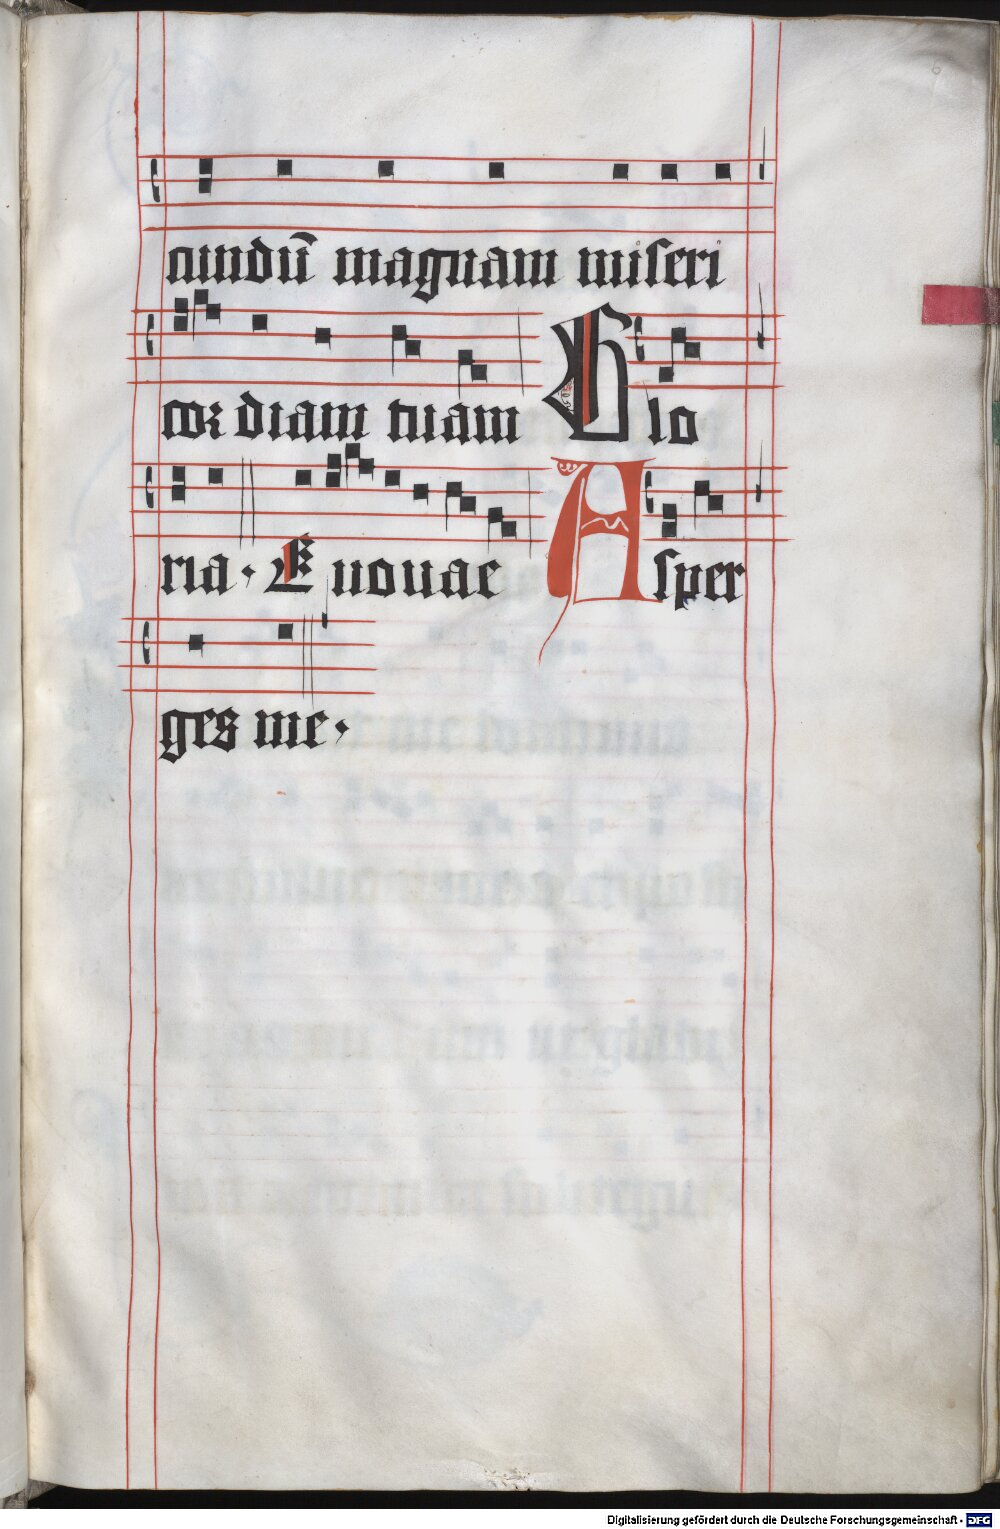 cundū magnam miseri
cordiam tuam Glo
ria. Euouae Asper
ges me.
6
Digitalisierung gefördert durch die Deutsche Forschungsgemeinschaft - DFG